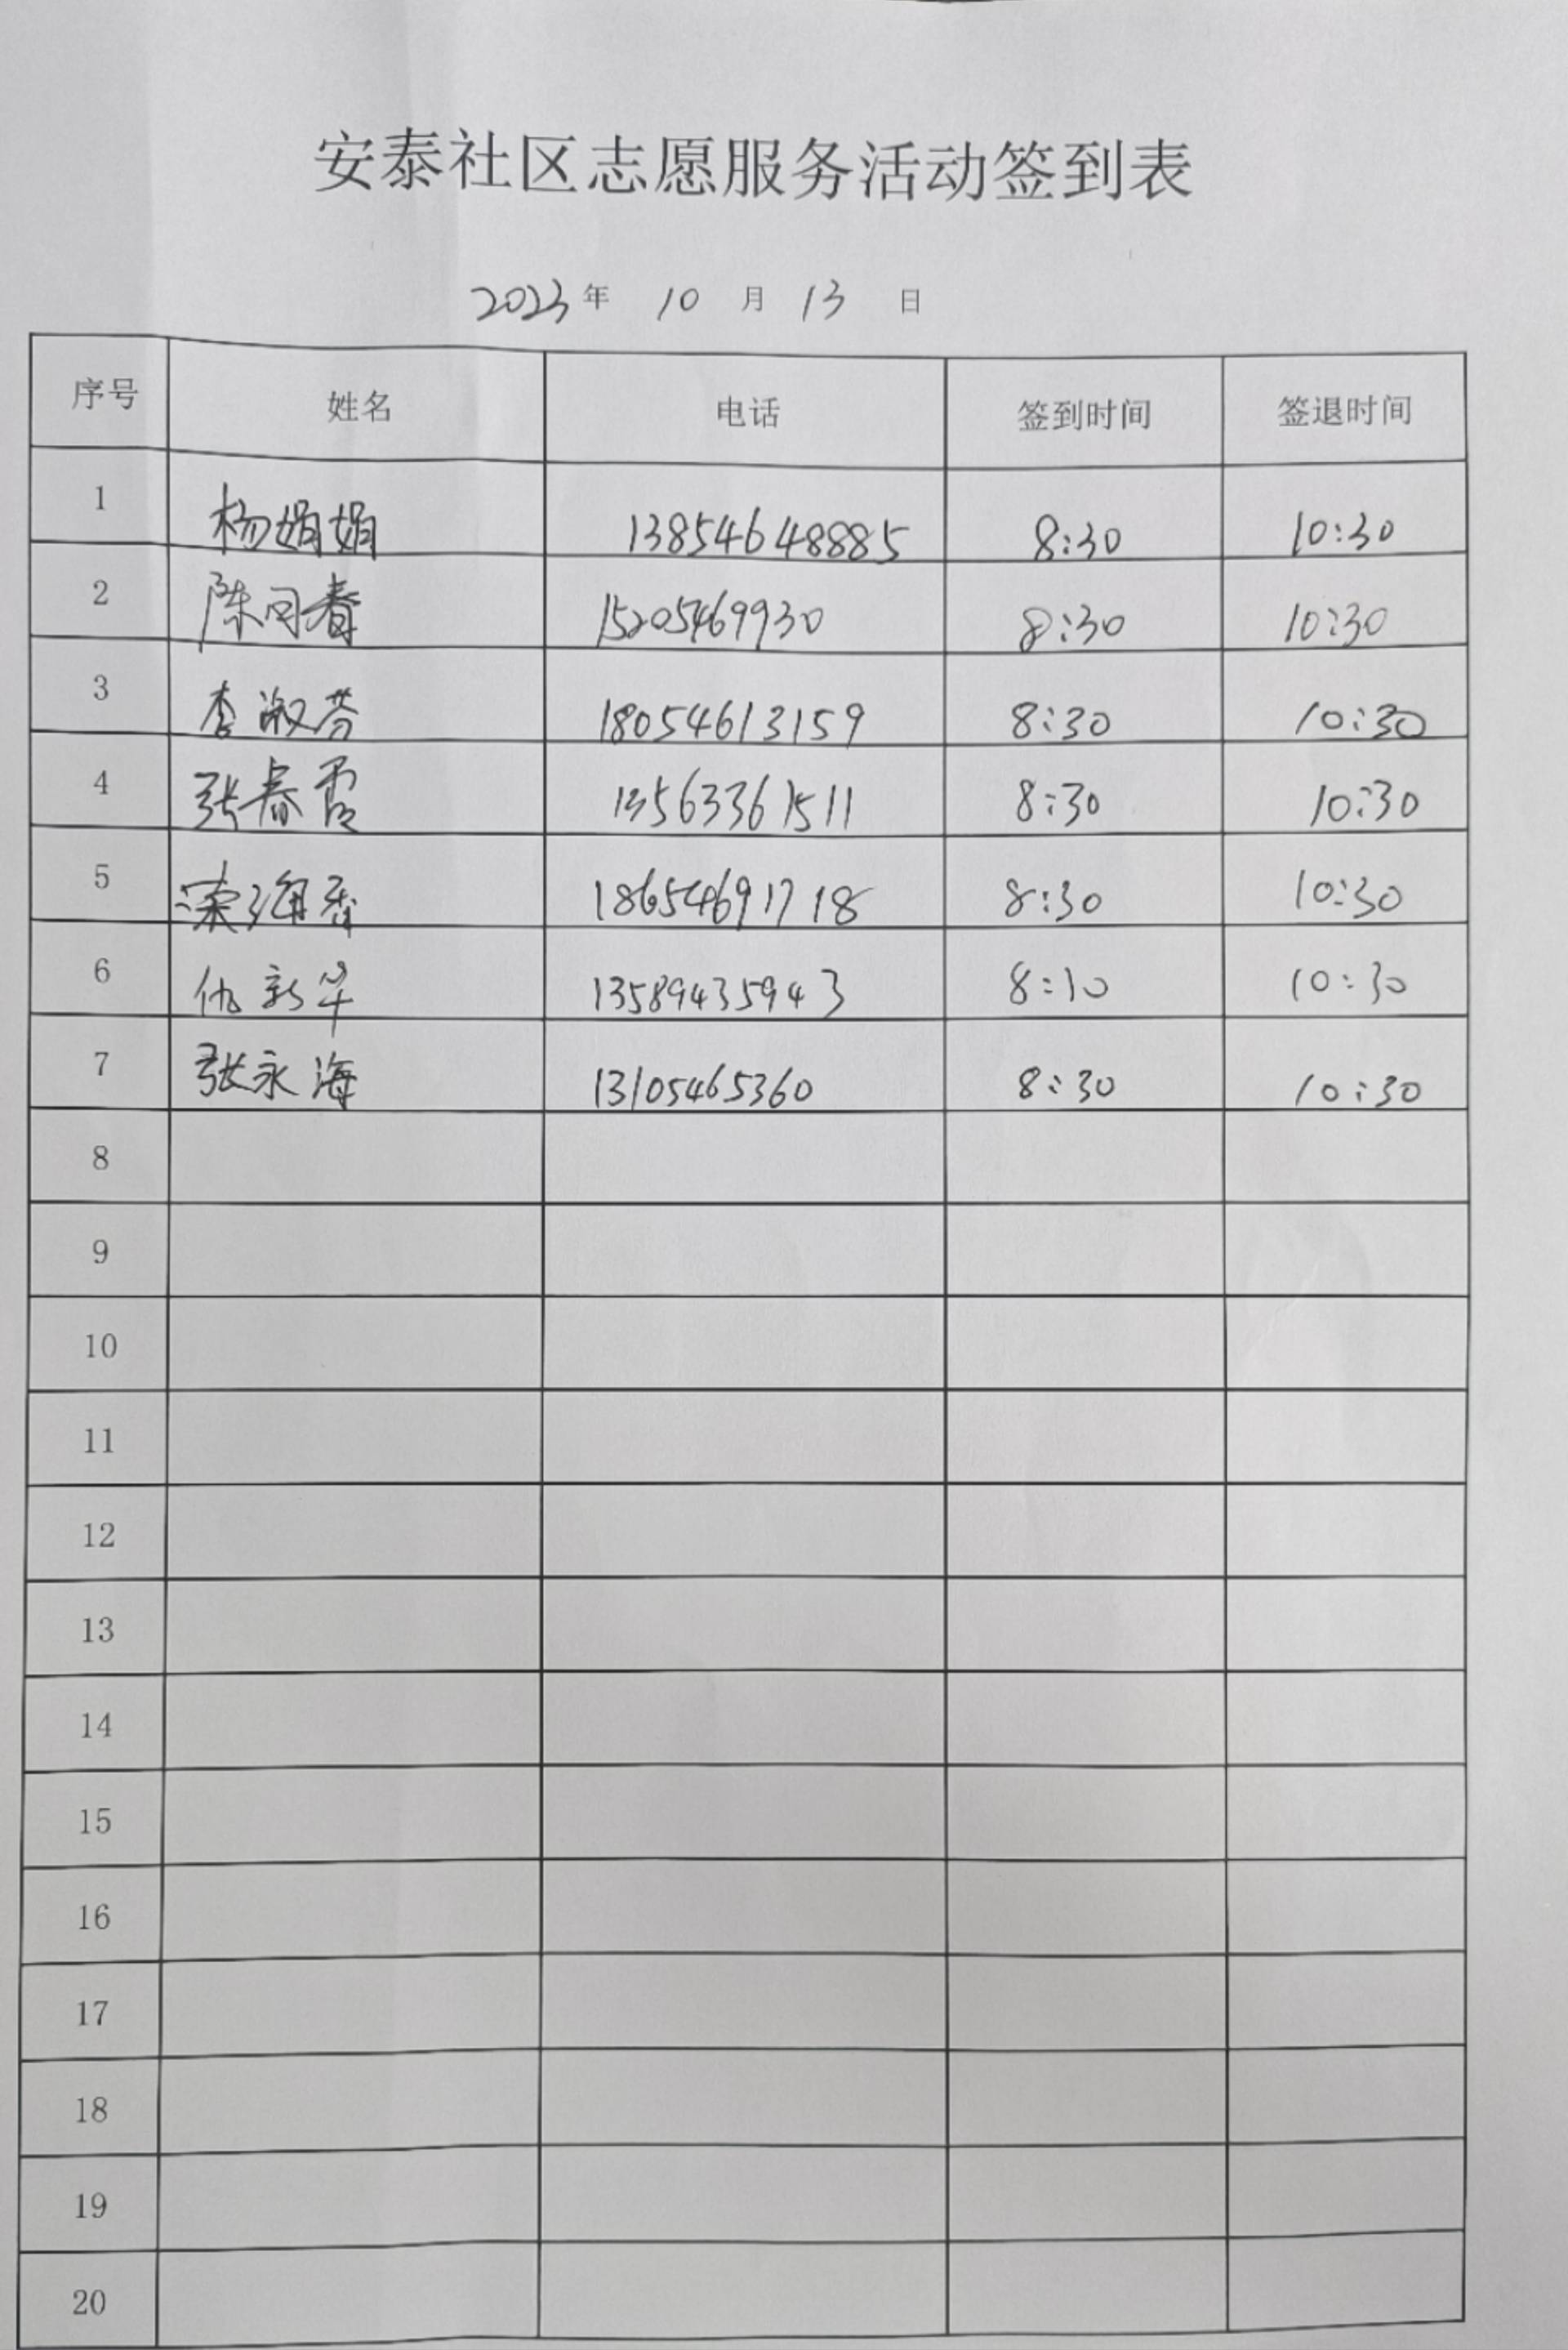 安泰社区志愿服务活动签到表
2023年 10 月 13 日
序号 姓名 电话 签到时间 签退时间
1 杨娟娟 13854648885 8:30 10:30
2 陈同春 15205469930 8:30 10:30
3 李淑芬 18054613159 8:30 10:30
4 张春霞 13563361511 8:30 10:30
5 海香 18654691718 8:30 10:30
6 仇新华 13589435943 8:30 10:30
7 张永海 13105465360 8:30 10:30
8
9
10
11
12
13
14
15
16
17
18
19
20